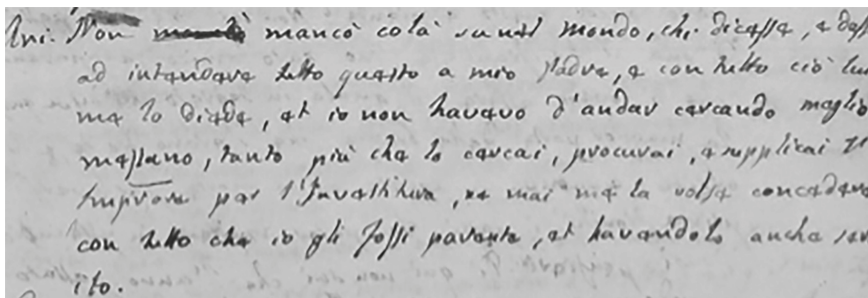 Ani. Non mancò colà su nel mondo, chi dicesse, e dass
ad intendere tutto questo a mio Padre, e con tutto ciò lui
me lo diede, et io non havevo d'andar cercando meglio
messano, tanto più che lo cercai, procurai, e supplicai
Imp.re per l'Investitura, ne mai me la volse concedere
con tutto che io gli fossi parente, et havendolo anche ser
ito.